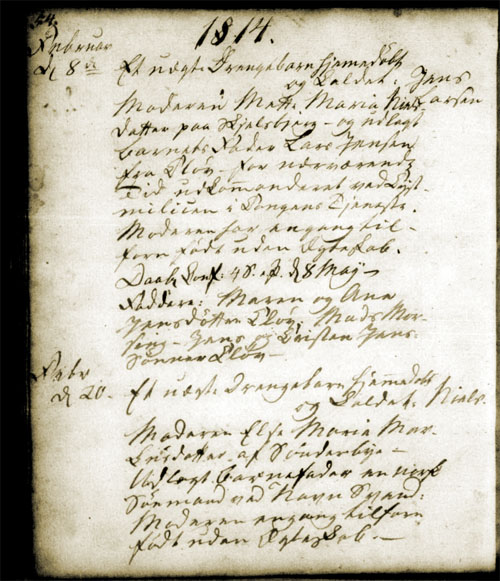 44.
1814.
Februar
d 8de Et uægte Drengebarn hjemedøbt
og kaldet: Jens
Moderen Mette Maria Niels Larsen
datter paa Skjelsbjerg – og udlagt
barnets Fader Lars Jensen
fra Fløy – for nærværende
Tid udkomanderet ved Kyst-
milicen i Kongens Tjeneste.
Moderen har engang til-
forn født uden Ægteskab.
Daab Conf: 4 S. e. P. d 8 Maj –
Faddere: Maren og Ane
Jensdøtter Fløy, Mads Mor-
– Jens og Kristen Jens-
Sønner Fløy –
Febr
d 20. Et uægte Drengebarn hjemmedøbt
og kaldet: Niels
Moderen Else Maria Mar-
kusdatter af Sønderbye –
Udlagt Barnefader en norsk
Sømand ved Navn Svend:
Moderen engang tilforn
født uden Ægteskab. –